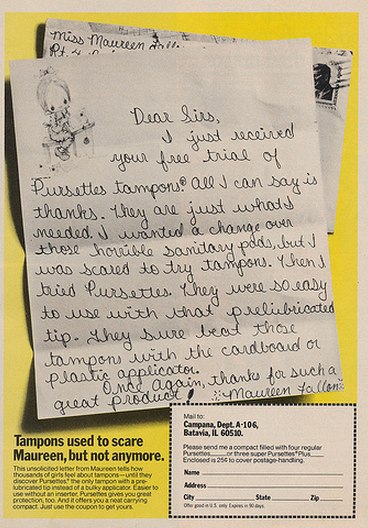 Miss Maureen
Dear Sirs,
I just received
your free trial of
Pursettes tampons.® All I can say is
thanks. They are just what I
needed. I wanted a change over
those horrible sanitary pads, but I
was scared to try tampons. Then I
tried Pursettes. They were so easy
to use with that prelubricated
tip. They sure beat those
tampons with the cardboard or
plastic applicator.
Once again, thanks for such a
great product!
Maureen Fallon
Tampons used to scare
Maureen, but not anymore.
This unsolicited letter from Maureen tells how
thousands of girls feel about tampons—until they
discover Pursettes,® the only tampon with a pre-
lubricated tip instead of a bulky applicator. Easier to
use without an inserter, Pursettes gives you great
protection, too. And it offers you a neat carrying
compact. Just use the coupon to get yours.
Mail to:
Campana, Dept. A-106,
Batavia, IL 60510.
Please send me a compact filled with four regular
Pursettes____or three super Pursettes® Plus____
Enclosed is 25¢ to cover postage-handling.
Name
Address
City State Zip
Offer good in U.S. only. Expires in 90 days.